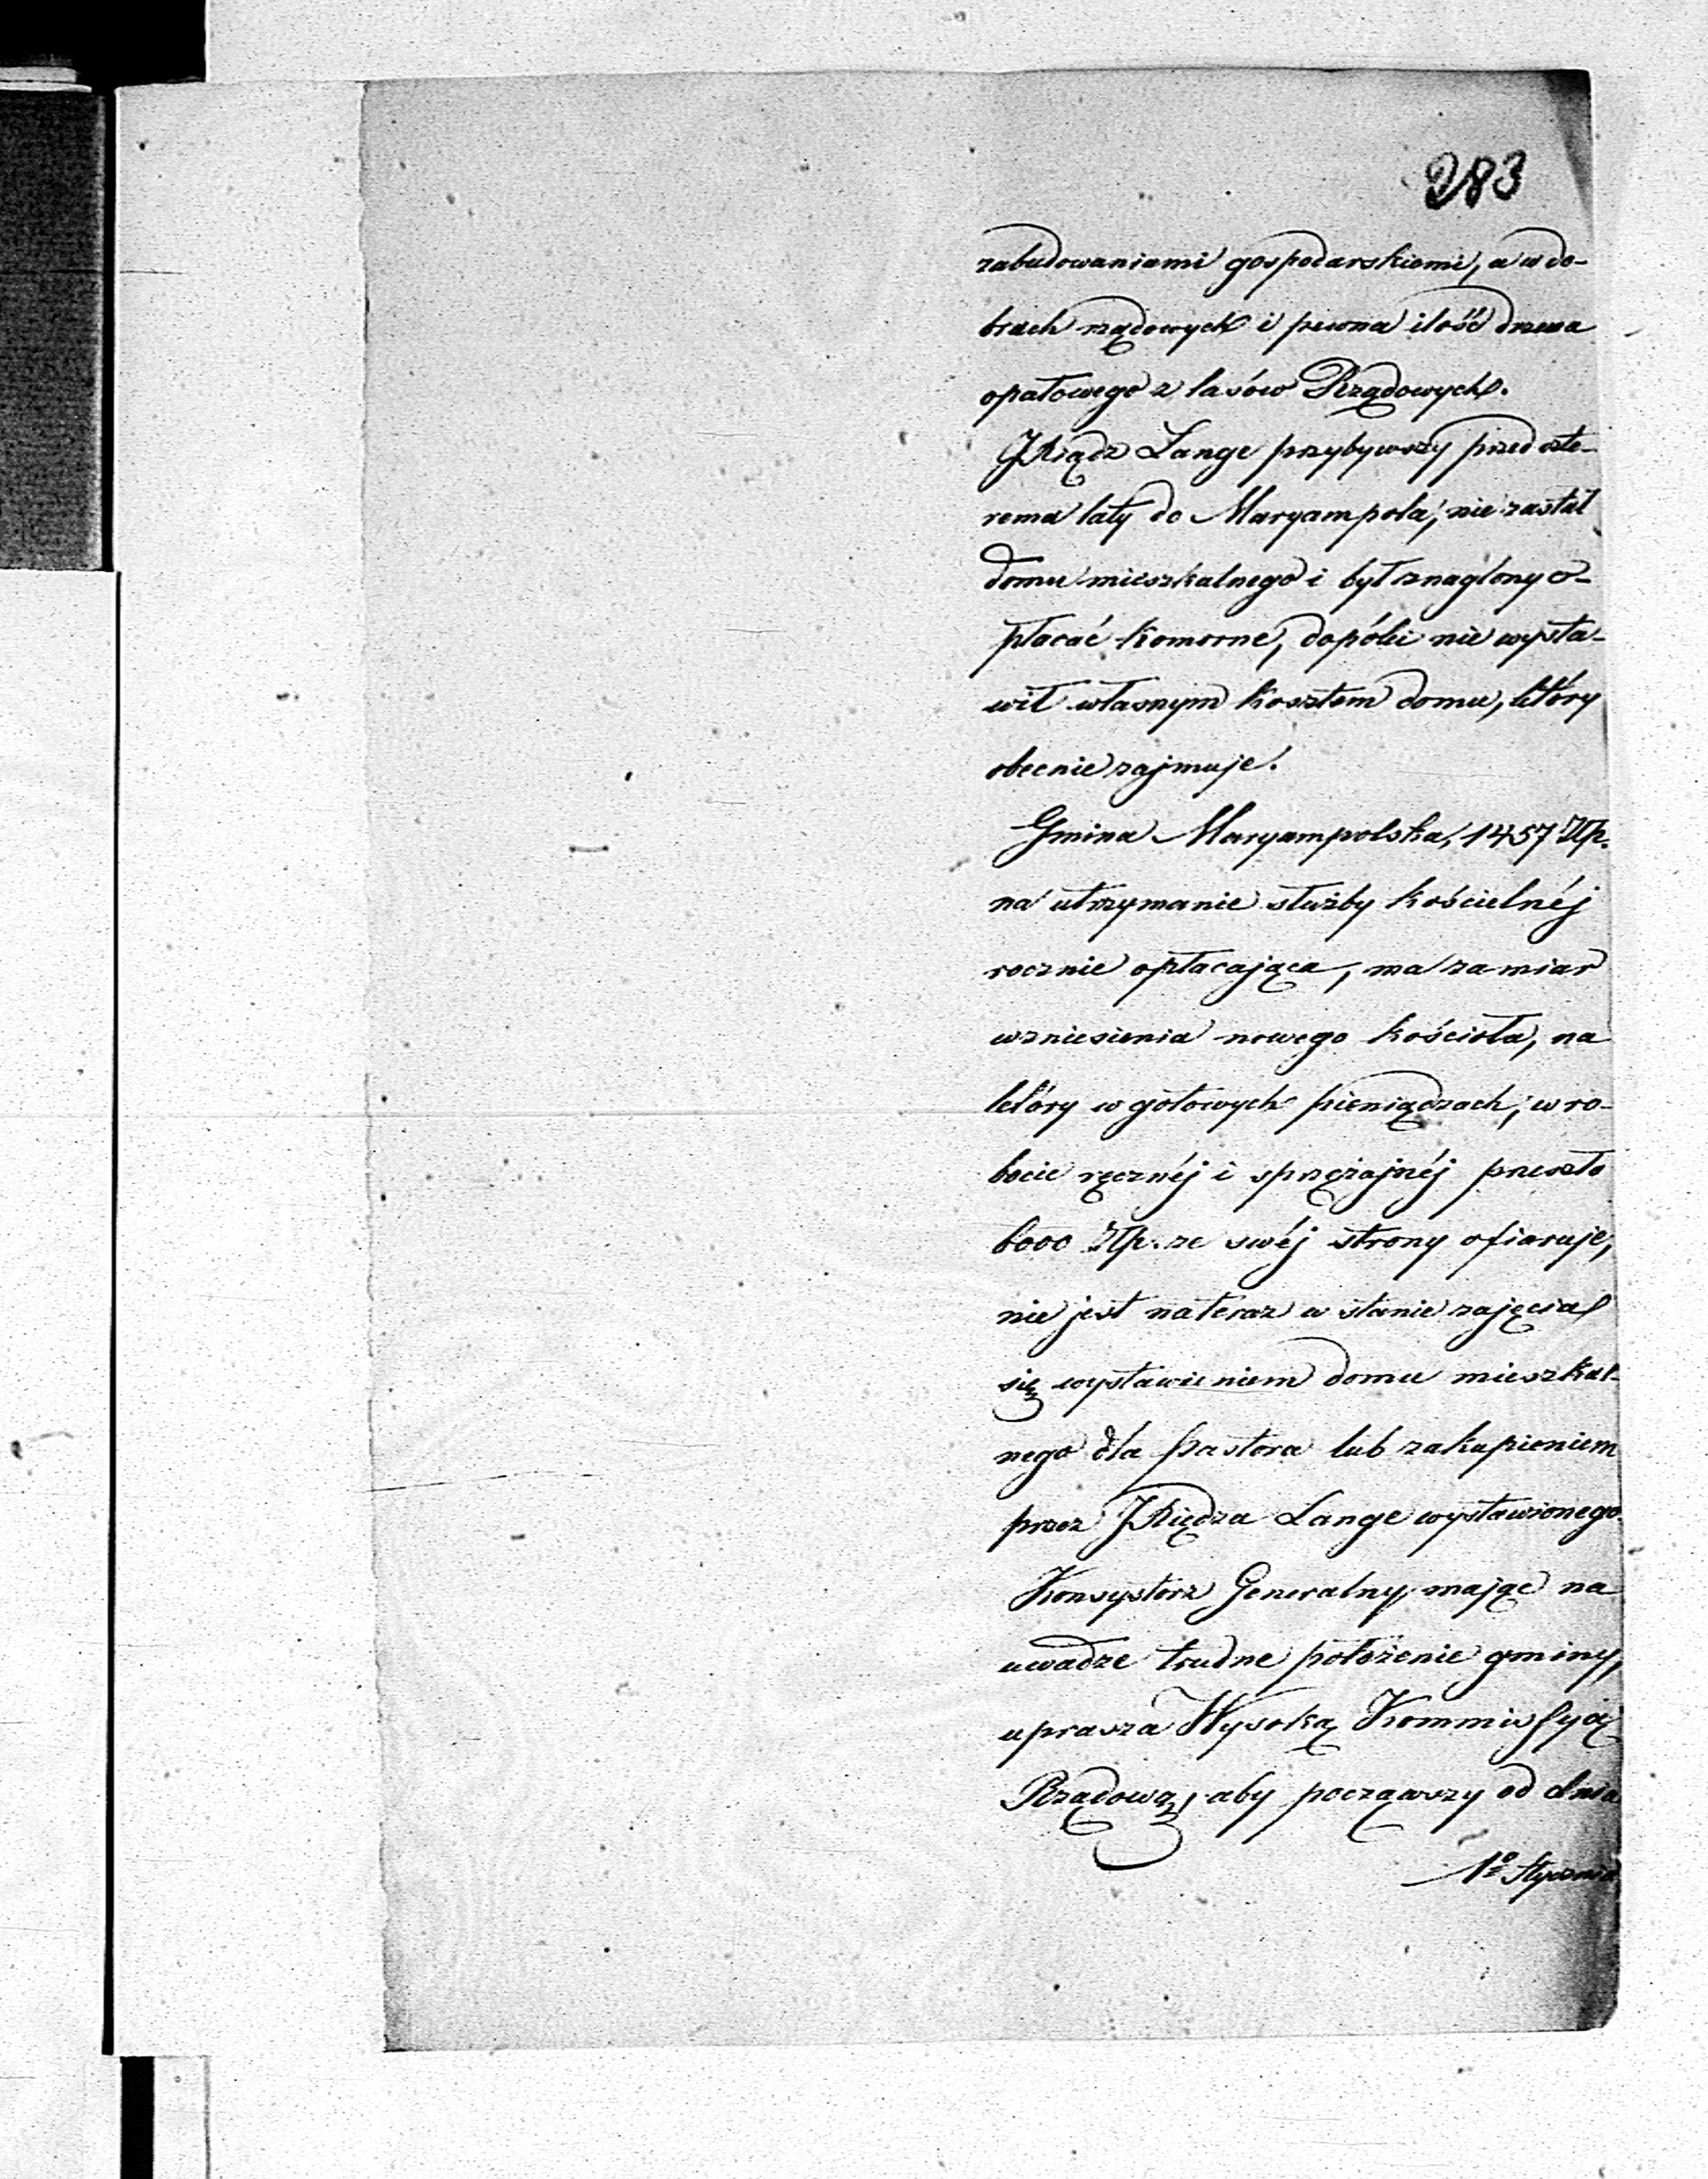 283
zabudowaniami gospodarskiemi, a w do-
brach rządowych i pewna ilość drzewa
opałowego z lasów Rządowych.
JXiądz Lange przybywszy przed czte-
rema laty do Maryampola, nie zastał
domu mieszkalnego i był znaglony o-
płacać komorne, dopóki nie wysta-
wił własnym kosztem domu, który
obecnie zajmuje.
Gmina Maryampolska, 1457 Złp.
na utrzymanie służby kościelnéj
rocznie opłacająca, ma zamiar
wzniesienia nowego kościoła, na
który w gotowych pieniądzach, w ro-
bocie ręcznéj i sprzężajnéj przeszło
6000 Złp. ze swéj strony ofiaruje,
nie jest nateraz w stanie zajęcia
się wystawieniem domu mieszkal-
nego dla pastora lub zakupieniem
przez JXiędza Lange wystawionego.
Konsystorz Generalny mając na
uwadze trudne położenie gminy,
uprasza Wysoką Kommissyą
Rządową, aby począwszy od dnia
1º Stycznia